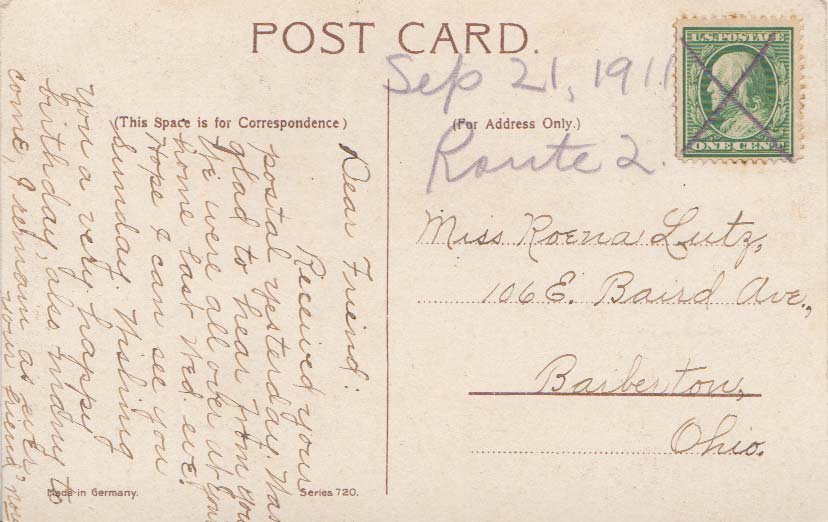 POST CARD.
U.S. POSTAGE
ONE CENT
Sep 21, 1911
(This Space is for Correspondence)
(For Address Only.)
Route 2.
Dear Friend:
Received your
postal yesterday. Was
glad to hear from you
We were all over at your
home last Wed. eve.
Hope I can see you
Sunday. Wishing
you a very happy
birthday, also many to
come, I remain as ever,
your friend,
Miss Roena Lutz,
106 E. Baird Ave.,
Barberton,
Ohio.
Made in Germany.
Series 720.